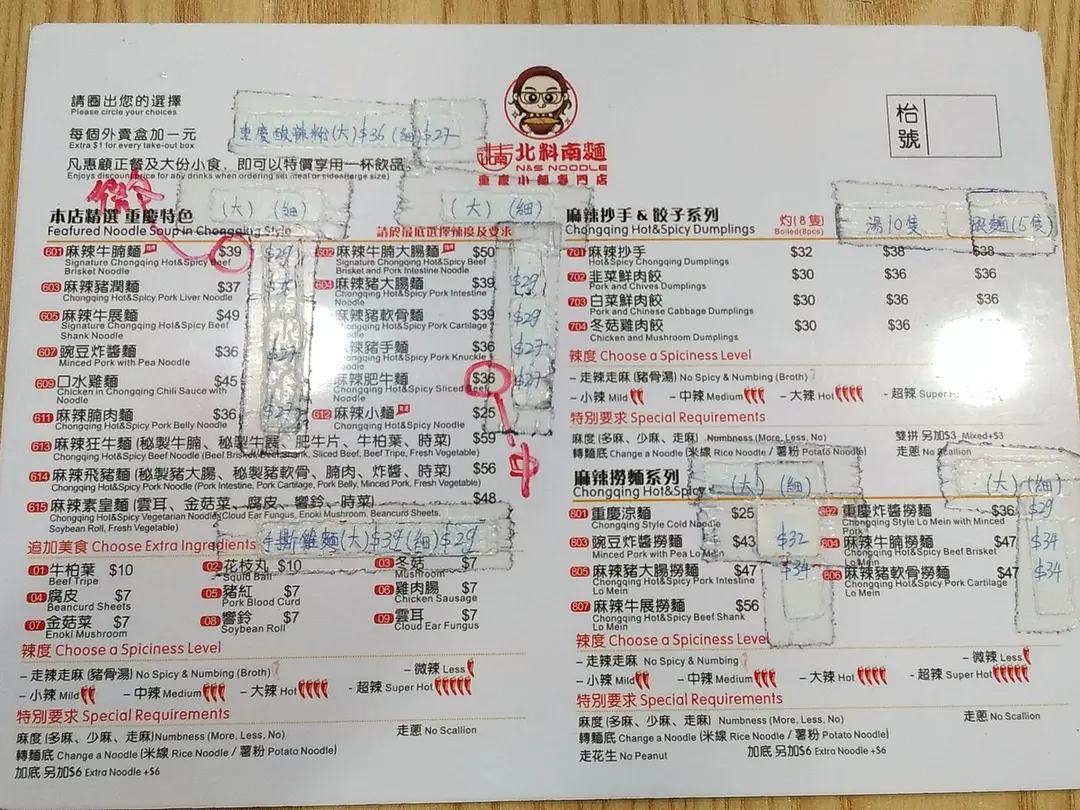 請圈出您的選擇
Please circle your choices
每個外賣盒加一元
Extra $1 for every take-out box
重慶酸辣粉(大)$36 (細)$27
凡惠顧正餐及大份小食,即可以特價享用一杯飲品。
北料南麵
N&S NOODLE
重慶小麵專門店
枱號
本店精選 重慶特色
Featured Noodle Soup in Chongqing Style
(大) (細)
(大) (細)
請於最底選擇辣度及要求
601 麻辣牛腩麵 $39 $29
Signature Chongqing Hot&Spicy Beef
Brisket Noodle
602 麻辣牛腩大腸麵 $50
Signature Chongqing Hot&Spicy Beef
Brisket and Pork Intestine Noodle
603 麻辣豬潤麵 $37
Chongqing Hot&Spicy Pork Liver Noodle
604 麻辣豬大腸麵 $39 $29
Chongqing Hot&Spicy Pork Intestine
Noodle
605 麻辣牛展麵 $49
Signature Chongqing Hot&Spicy Beef
Shank Noodle
麻辣豬軟骨麵 $39 $29
Chongqing Hot&Spicy Pork Cartilage
Noodle
607 豌豆炸醬麵 $36 $27
Minced Pork with Pea Noodle
麻辣豬手麵 $36 $27
Chongqing Hot&Spicy Pork Knuckle
Noodle
609 口水雞麵 $45
Chicken in Chongqing Chili Sauce with
Noodle
麻辣肥牛麵 $36 $27
Chongqing Hot&Spicy Sliced Beef
Noodle
611 麻辣腩肉麵 $36 $27
Chongqing Hot&Spicy Pork Belly Noodle
612 麻辣小麵 $25
Chongqing Hot&Spicy Noodle
613 麻辣狂牛麵 (秘製牛腩、秘製牛展、肥牛片、牛柏葉、時菜) $59
Chongqing Hot&Spicy Beef Noodle (Beef Brisket, Beef Shank, Sliced Beef, Beef Tripe, Fresh Vegetable)
614 麻辣飛豬麵 (秘製豬大腸、秘製豬軟骨、腩肉、炸醬、時菜) $56
Chongqing Hot&Spicy Pork Noodle (Pork Intestine, Pork Cartilage, Pork Belly, Minced Pork, Fresh Vegetable)
615 麻辣素皇麵 (雲耳、金菇菜、腐皮、響鈴、時菜) $48
Chongqing Hot&Spicy Vegetarian Noodle (Cloud Ear Fungus, Enoki Mushroom, Beancurd Sheets,
Soybean Roll, Fresh Vegetable)
手撕雞麵(大)$39(細)$29
追加美食 Choose Extra Ingredients
01 牛柏葉 $10
Beef Tripe
02 花枝丸 $10
Squid Ball
03 冬菇 $7
Mushroom
04 腐皮 $7
Beancurd Sheets
05 豬紅 $7
Pork Blood Curd
06 雞肉腸 $7
Chicken Sausage
07 金菇菜 $7
Enoki Mushroom
08 響鈴 $7
Soybean Roll
09 雲耳 $7
Cloud Ear Fungus
辣度 Choose a Spiciness Level
- 走辣走麻 (豬骨湯) No Spicy & Numbing (Broth)
- 微辣 Less
- 小辣 Mild
- 中辣 Medium
- 大辣 Hot
- 超辣 Super Hot
特別要求 Special Requirements
麻度 (多麻、少麻、走麻) Numbness (More, Less, No)
走蔥 No Scallion
轉麵底 Change a Noodle (米線 Rice Noodle / 薯粉 Potato Noodle)
加底 另加$6 Extra Noodle +$6
麻辣抄手 & 餃子系列
Chongqing Hot&Spicy Dumplings
灼(8隻)
Boiled(8pcs)
湯10隻
701 麻辣抄手 $32 $38 $38
Hot&Spicy Chongqing Dumplings
702 韮菜鮮肉餃 $30 $36 $36
Pork and Chives Dumplings
703 白菜鮮肉餃 $30 $36 $36
Pork and Chinese Cabbage Dumplings
704 冬菇雞肉餃 $30 $36
Chicken and Mushroom Dumplings
辣度 Choose a Spiciness Level
- 走辣走麻 (豬骨湯) No Spicy & Numbing (Broth)
- 小辣 Mild
- 中辣 Medium
- 大辣 Hot
- 超辣 Super
特別要求 Special Requirements
麻度 (多麻、少麻、走麻) Numbness (More, Less, No)
雙拼 另加$3 Mixed+$3
轉麵底 Change a Noodle (米線 Rice Noodle / 薯粉 Potato Noodle)
走蔥 No Scallion
麻辣撈麵系列
Chongqing Hot&Spicy
(大) (細)
(大) (細)
801 重慶涼麵 $25
Chongqing Style Cold Noodle
802 重慶炸醬撈麵 $36 $29
Chongqing Style Lo Mein with Minced
Pork
803 豌豆炸醬撈麵 $43 $32
Minced Pork with Pea Lo Mein
804 麻辣牛腩撈麵 $47 $34
Chongqing Hot&Spicy Beef Brisket
Lo Mein
805 麻辣豬大腸撈麵 $47 $34
Chongqing Hot&Spicy Pork Intestine
Lo Mein
806 麻辣豬軟骨撈麵 $47 $34
Chongqing Hot&Spicy Pork Cartilage
Lo Mein
807 麻辣牛展撈麵 $56
Chongqing Hot&Spicy Beef Shank
Lo Mein
辣度 Choose a Spiciness Level
- 走辣走麻 No Spicy & Numbing
- 微辣 Less
- 小辣 Mild
- 中辣 Medium
- 大辣 Hot
- 超辣 Super Hot
特別要求 Special Requirements
麻度 (多麻、少麻、走麻) Numbness (More, Less, No)
走蔥 No Scallion
轉麵底 Change a Noodle (米線 Rice Noodle / 薯粉 Potato Noodle)
走花生 No Peanut
加底 另加$6 Extra Noodle +$6